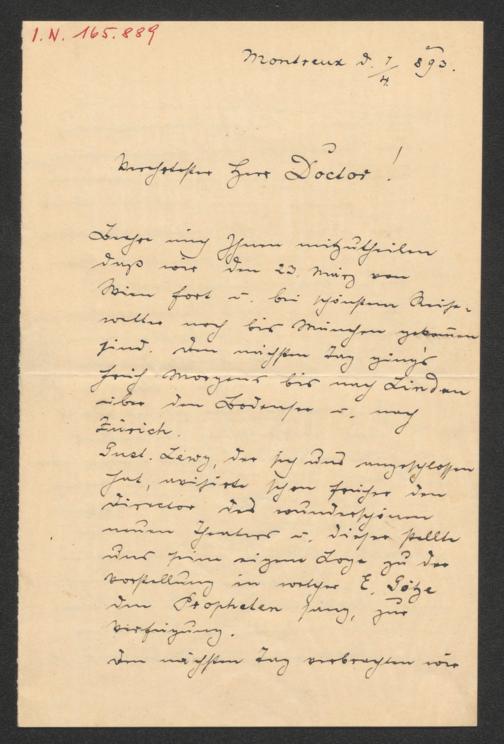 I.N. 165.889
Montreux d. 7/4. 893.
Verehrtester Herr Doctor!
Beehre mich Ihnen mitzutheilen
daß wir den 23. März von
Wien fort u. bei schönstem Reise-
wetter noch bis München gekommen
sind. Den nächsten Tag ging's
früh Morgens bis nach Lindau
über den Bodensee u. nach
Zürich.
Gust. Lewy, der sich uns angeschlossen
hat, avisirte schon früher den
Director des wunderschönen
neuen Theaters u. dieser stellte
uns seine eigene Loge zu der
Vorstellung in welcher E. Götze
den Propheten sang, zur
Verfügung.
Den nächsten Tag verbrachten wir